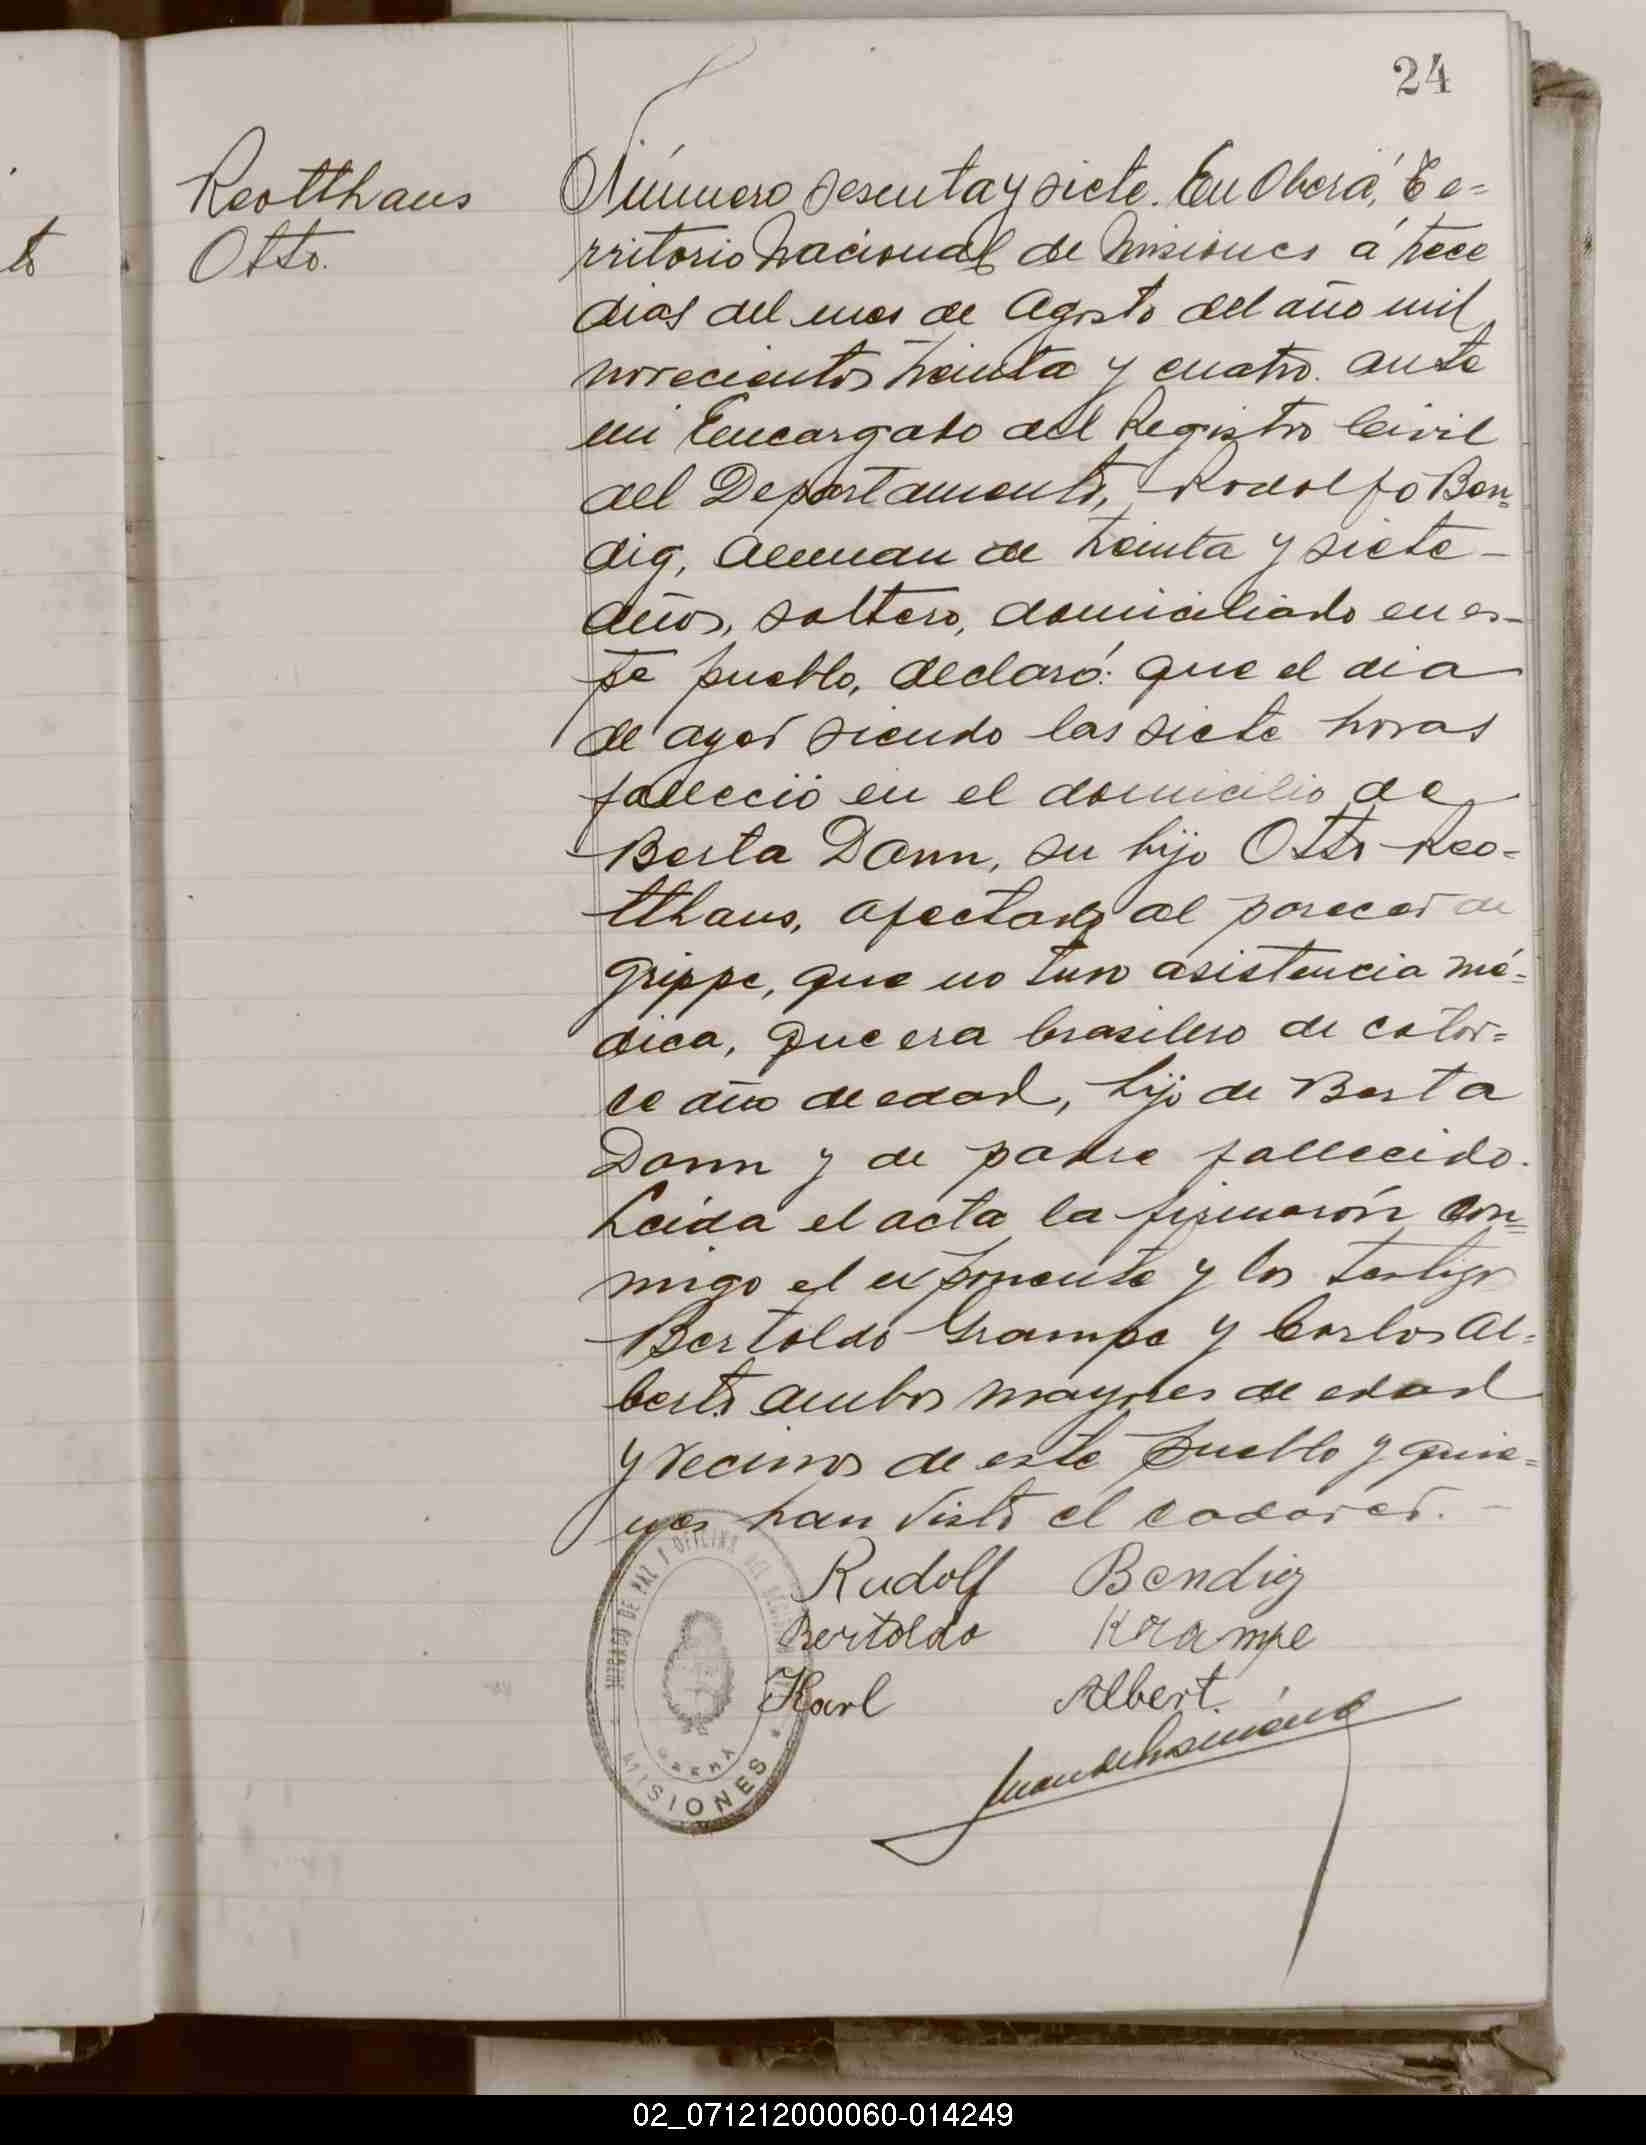 24
Reotthaus
Otto.
to
Número sesenta y siete. En Oberá, Te=
rritorio Nacional de Misiones á trece
dias del mes de Agosto del año mil
novecientos treinta y cuatro. ante
mi Encargado del Registro Civil
del Departamento, Rodolfo Ben=
dig, Aleman de treinta y siete -
años, soltero, domiciliado en es-
te pueblo, declaró: que el dia
de ayer siendo las siete horas
falleció en el domicilio de
Berta Dann, su hijo Otto Reo=
tthaus, afectado al parecer de
grippe, que no tuvo asistencia mé=
dica, que era brasilero de cator=
ce años de edad, hijo de Berta
Dann y de padre fallecido.
Leida el acta la firmarón con=
migo el exponente y los testigos
Bertoldo Grampe y Carlos Al=
berto ambos mayores de edad
y vecinos de este pueblo y quie=
nes han visto el cadaver. -
Rudolf Bendig
Bertoldo Krampe
Karl Albert
JUZGADO DE PAZ Y OFICINA DEL REGISTRO CIVIL
OBERÁ
MISIONES
02_071212000060-014249